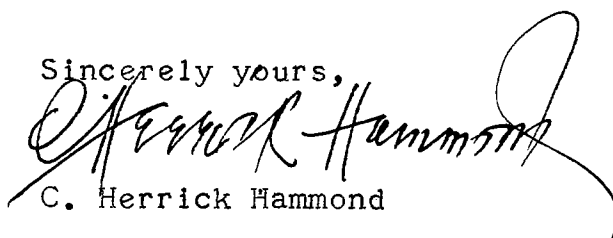 Sincerely yours,
C. Herrick Hammond
C. Herrick Hammond